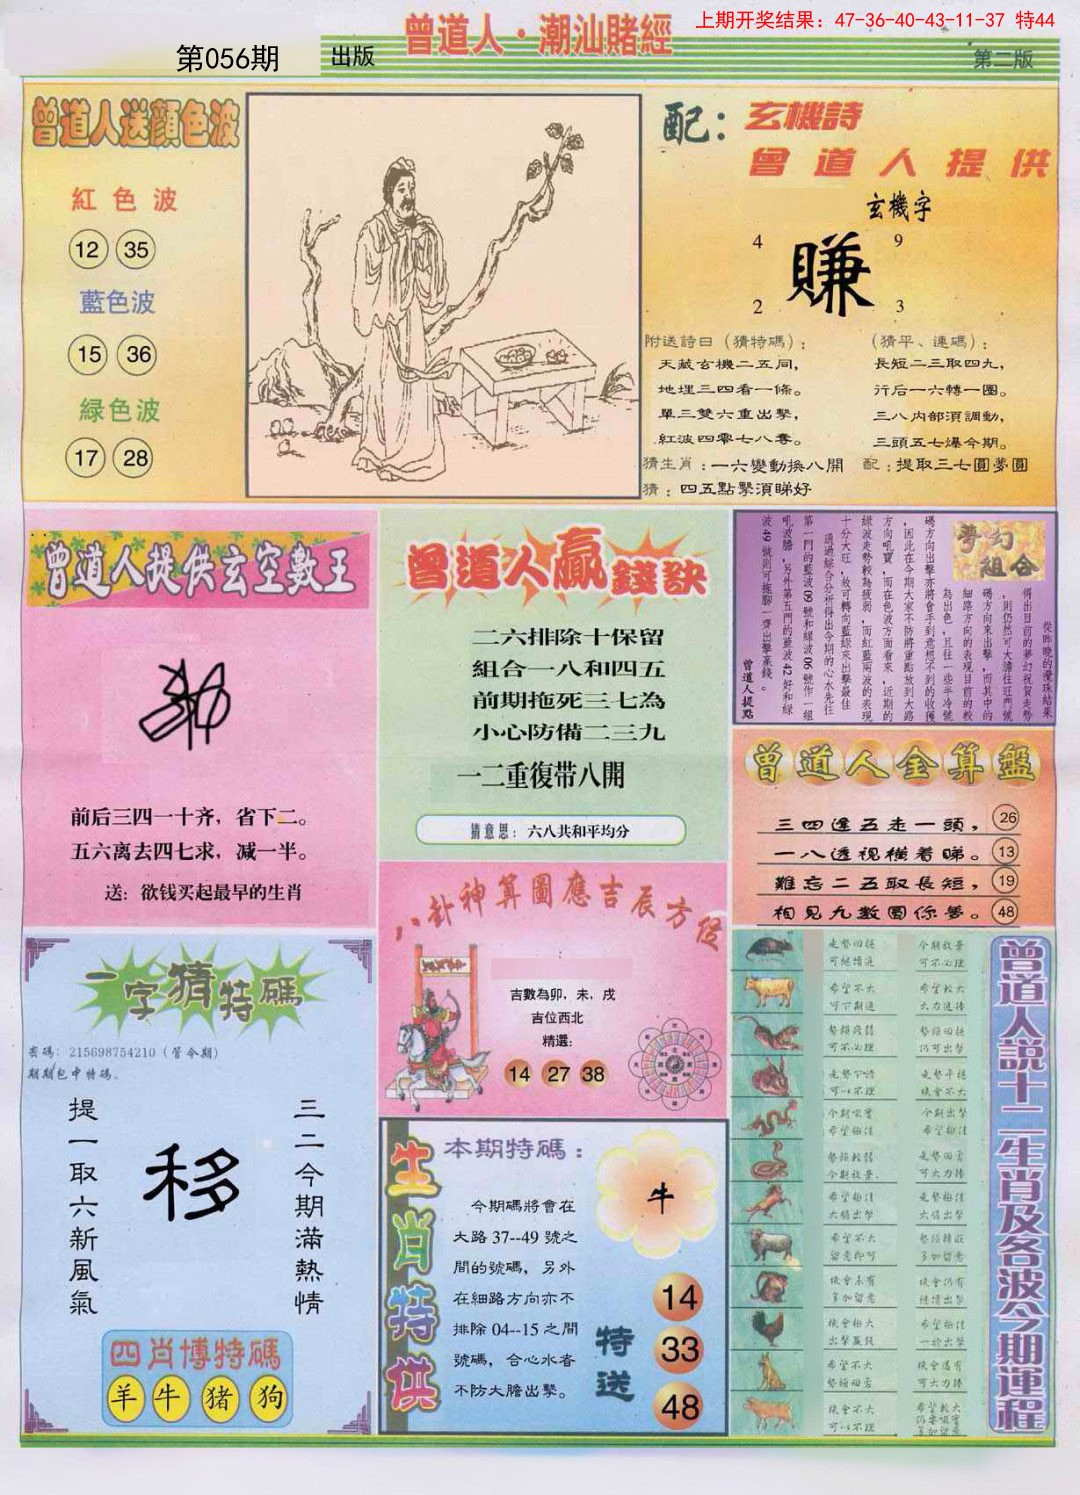 上期开奖结果：47-36-40-43-11-37 特44
第056期
出版
曾道人·潮汕賭經
第二版
曾道人送顔色波
紅色波
12 35
藍色波
15 36
緑色波
17 28
配：玄機詩
曾道人提供
玄機字
4 9
賺
2 3
附送詩曰（猜特碼）；
天藏玄機二五同，
地埋三四看一條。
單三雙六重出擊，
紅波四零七八奪。
（猜平、連碼）；
長短二三取四九，
行后一六轉一圈。
三八内部湏調動，
三頭五七爆今期。
猜生肖：一六變動換八開
配：提取三七圓夢圆
猜：四五點擊湏睇好
曾道人提供玄空數王
前后三四一十齐，省下二。
五六离去四七求，减一半。
送：欲钱买起最早的生肖
曾道人贏錢訣
二六排除十保留
組合一八和四五
前期拖死三七為
小心防備二三九
一二重復带八開
猜意思：六八共和平均分
夢幻組合
從昨晚的攪珠結果
得出目前的夢幻祝賀走勢
，則仍然可大膽往旺門號
碼方向來出擊，而其中的
細路方向的表現目前的較
為出色，且往一些半冷號
碼方向出擊亦將會手到意想不到的收獲
，因此在今期大家不防將重點放到大路
方向吼寶，而在色波方面看來，近期的
綠波走勢較為疲弱，而紅藍兩波的表現
十分大旺，故可轉向藍綠來出擊最佳
。通過綜合分析得出今期的心水先往
第一門的藍波09號和綠波06號作一組
吼波膽，另外第五門的藍波42好和綠
波49號則可拖腳一齊出擊赢錢。
曾道人提點
曾道人金算盤
三四逢五走一頭， 26
一八透視横着睇。 13
難忘二五取長短， 19
相見九數圆你夢。 48
八卦神算圖應吉辰方位
吉數為卯，未，戌
吉位西北
精選：
14 27 38
一字猜特碼
密碼：215698754210（管今期）
期期包中特碼、
提一取六新風氣
移
三二今期滿熱情
四肖博特碼
羊 牛 猪 狗
生肖特供
本期特碼：
今期碼將會在
大路37--49號之
間的號碼，另外
在細路方向亦不
排除04--15之間
號碼，合心水者
不防大膽出擊。
牛
特送
14
33
48
曾道人説十二生肖及各波今期運程